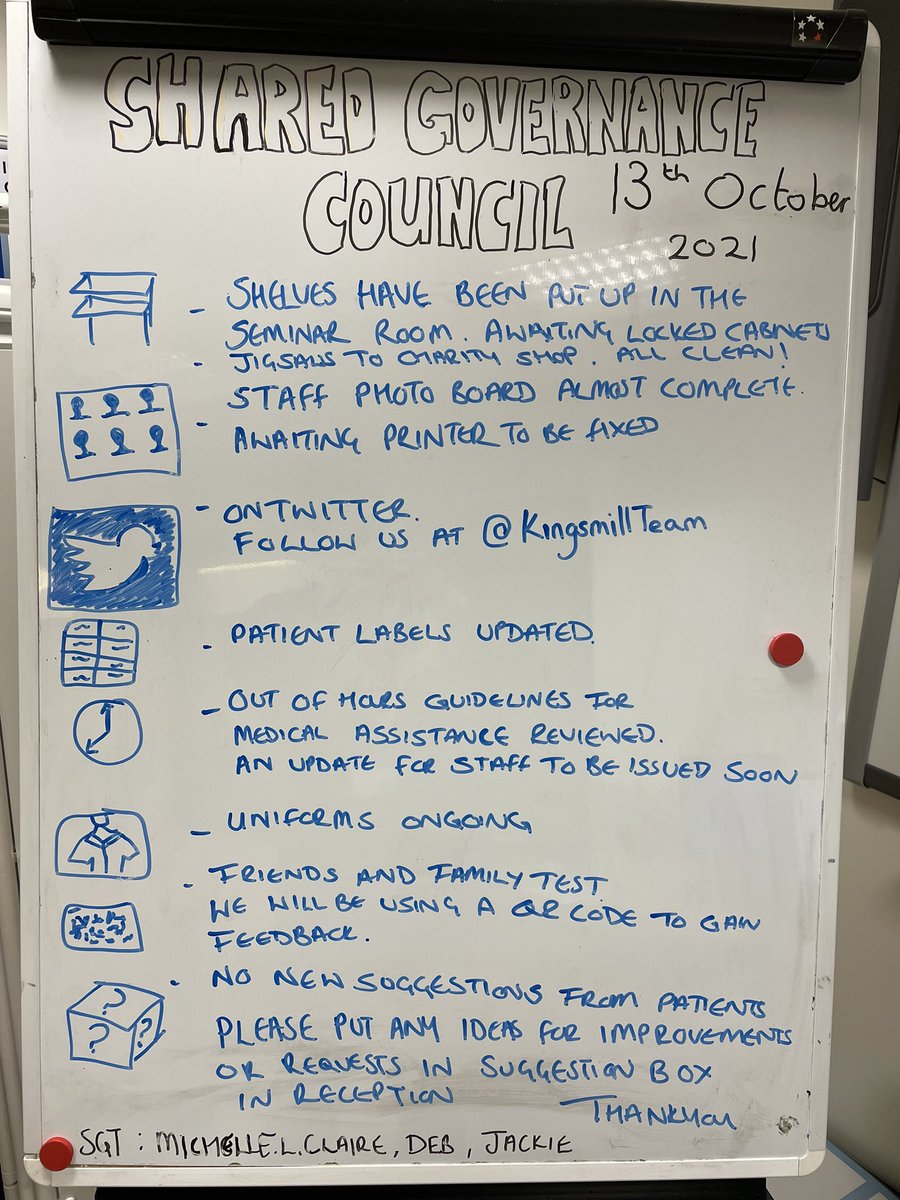 SHARED GOVERNANCE
COUNCIL 13th October
2021
- SHELVES HAVE BEEN PUT UP IN THE
SEMINAR ROOM. AWAITING LOCKED CABINETS
- JIGSAWS TO CHARITY SHOP. ALL CLEAN!
STAFF PHOTO BOARD ALMOST COMPLETE.
- AWAITING PRINTER TO BE FIXED
- ON TWITTER.
FOLLOW US AT @KingsmillTeam
- PATIENT LABELS UPDATED.
- OUT OF HOURS GUIDELINES FOR
MEDICAL ASSISTANCE REVIEWED.
AN UPDATE FOR STAFF TO BE ISSUED SOON
- UNIFORMS ONGOING
- FRIENDS AND FAMILY TEST
WE WILL BE USING A QR CODE TO GAIN
FEEDBACK.
- NO NEW SUGGESTIONS FROM PATIENTS
? ? ?
PLEASE PUT ANY IDEAS FOR IMPROVEMENTS
OR REQUESTS IN SUGGESTION BOX
IN RECEPTION
THANKYOU
SGT : MICHELLE.L.CLAIRE, DEB, JACKIE